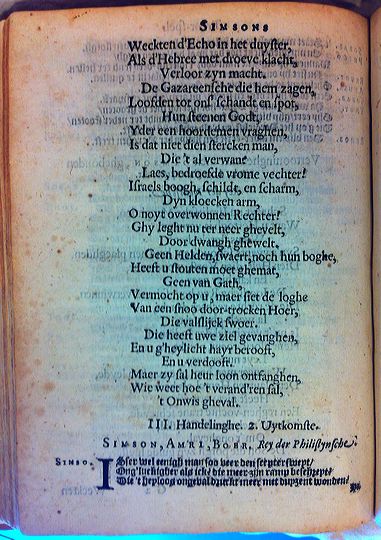 SIMSONS
Weckten d'Echo in het duyster,
Als d'Hebree met droeve klacht,
Verloor zyn macht.
De Gazareensche die hem zagen,
Loofden tot ons schandt en spot,
Hun steenen Godt,
Yder een hoordemen vraghen,
Is dat niet dien stercken man,
Die 't al verwan?
Laes, bedroefde vrome vechter!
Israels boogh, schildt, en scharm,
Dyn kloecken arm,
O noyt overwonnen Rechter!
Ghy leght nu ter neer ghevelt,
Door dwangh ghewelt.
Geen Helden, swaert, noch hun boghe,
Heeft u stouten moet ghemat,
Geen van Gath,
Vermocht op u, maer siet de loghe
Van een snoo door-trocken Hoer,
Die valslijck swoer.
Die heeft uwe ziel gevanghen,
En u g'heylicht hayr berooft,
En u verdooft.
Maer zy sal heur loon ontfanghen,
Wie weet hoe 't verand'ren sal,
't Onwis gheval.
III. Handelinghe. 2. Uytkomste.
SIMSON, AMRI, BOHR, Rey der Philistynsche
SIMSO. Isser wel eenigh man soo veer den scepter swept,
Ong'luckigher als ick? die meer zijn ramp beschept?
Wie 't heploos ongeval druckt meer met duyzent wonden?